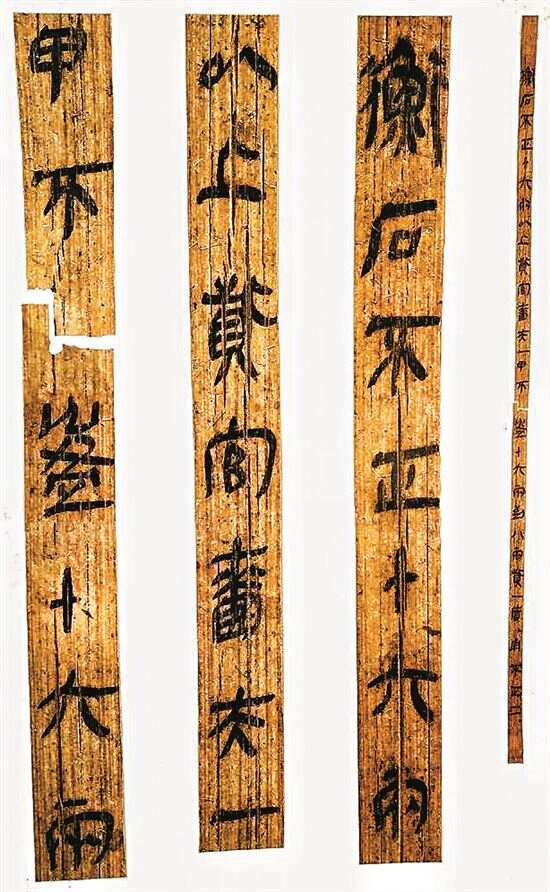 衡石不正十六兩以上貲官嗇夫一甲不盈十六兩到八兩貲一盾甬不正二
衡石不正十六兩
以上貲官嗇夫一
甲不盈十六兩